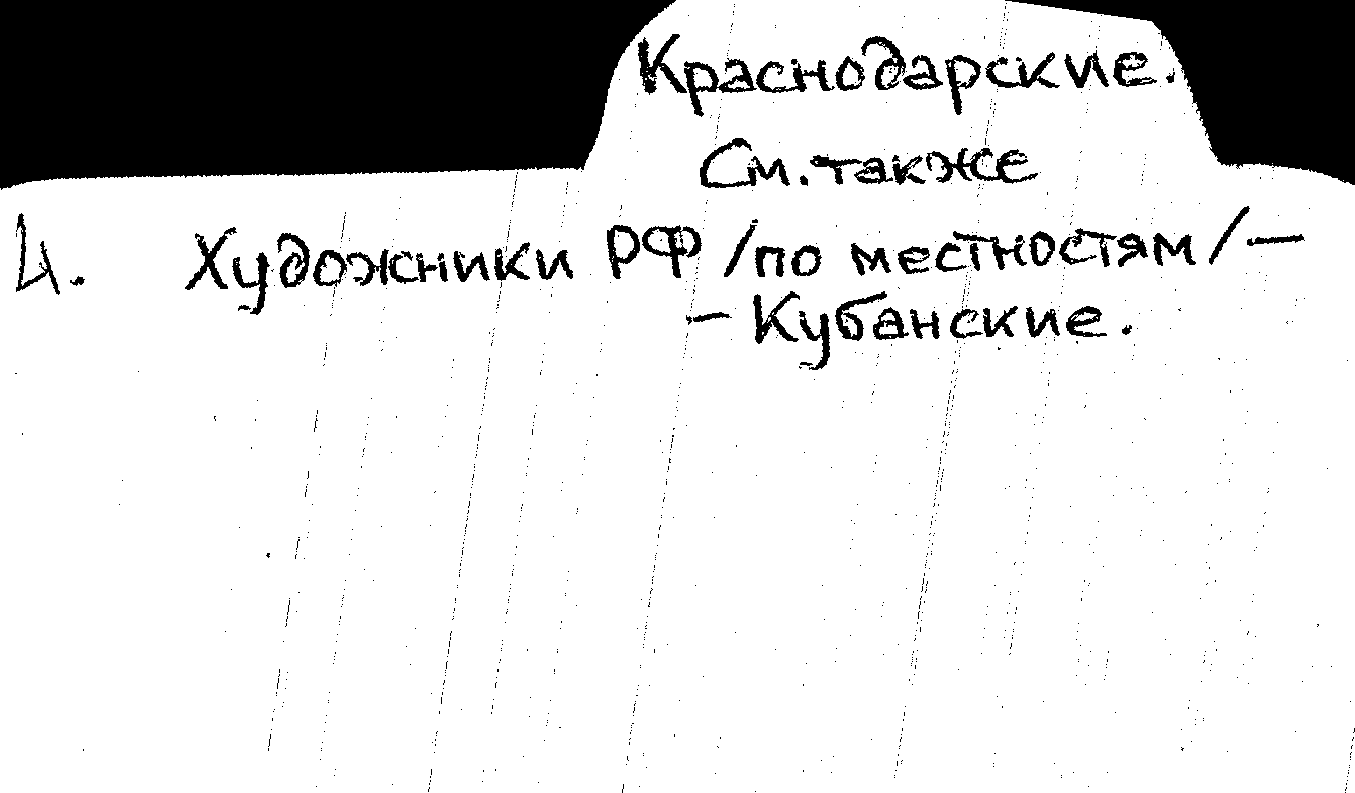 Краснодарские.
См. также
4. Художники РФ /по местностям/ —
— Кубанские.